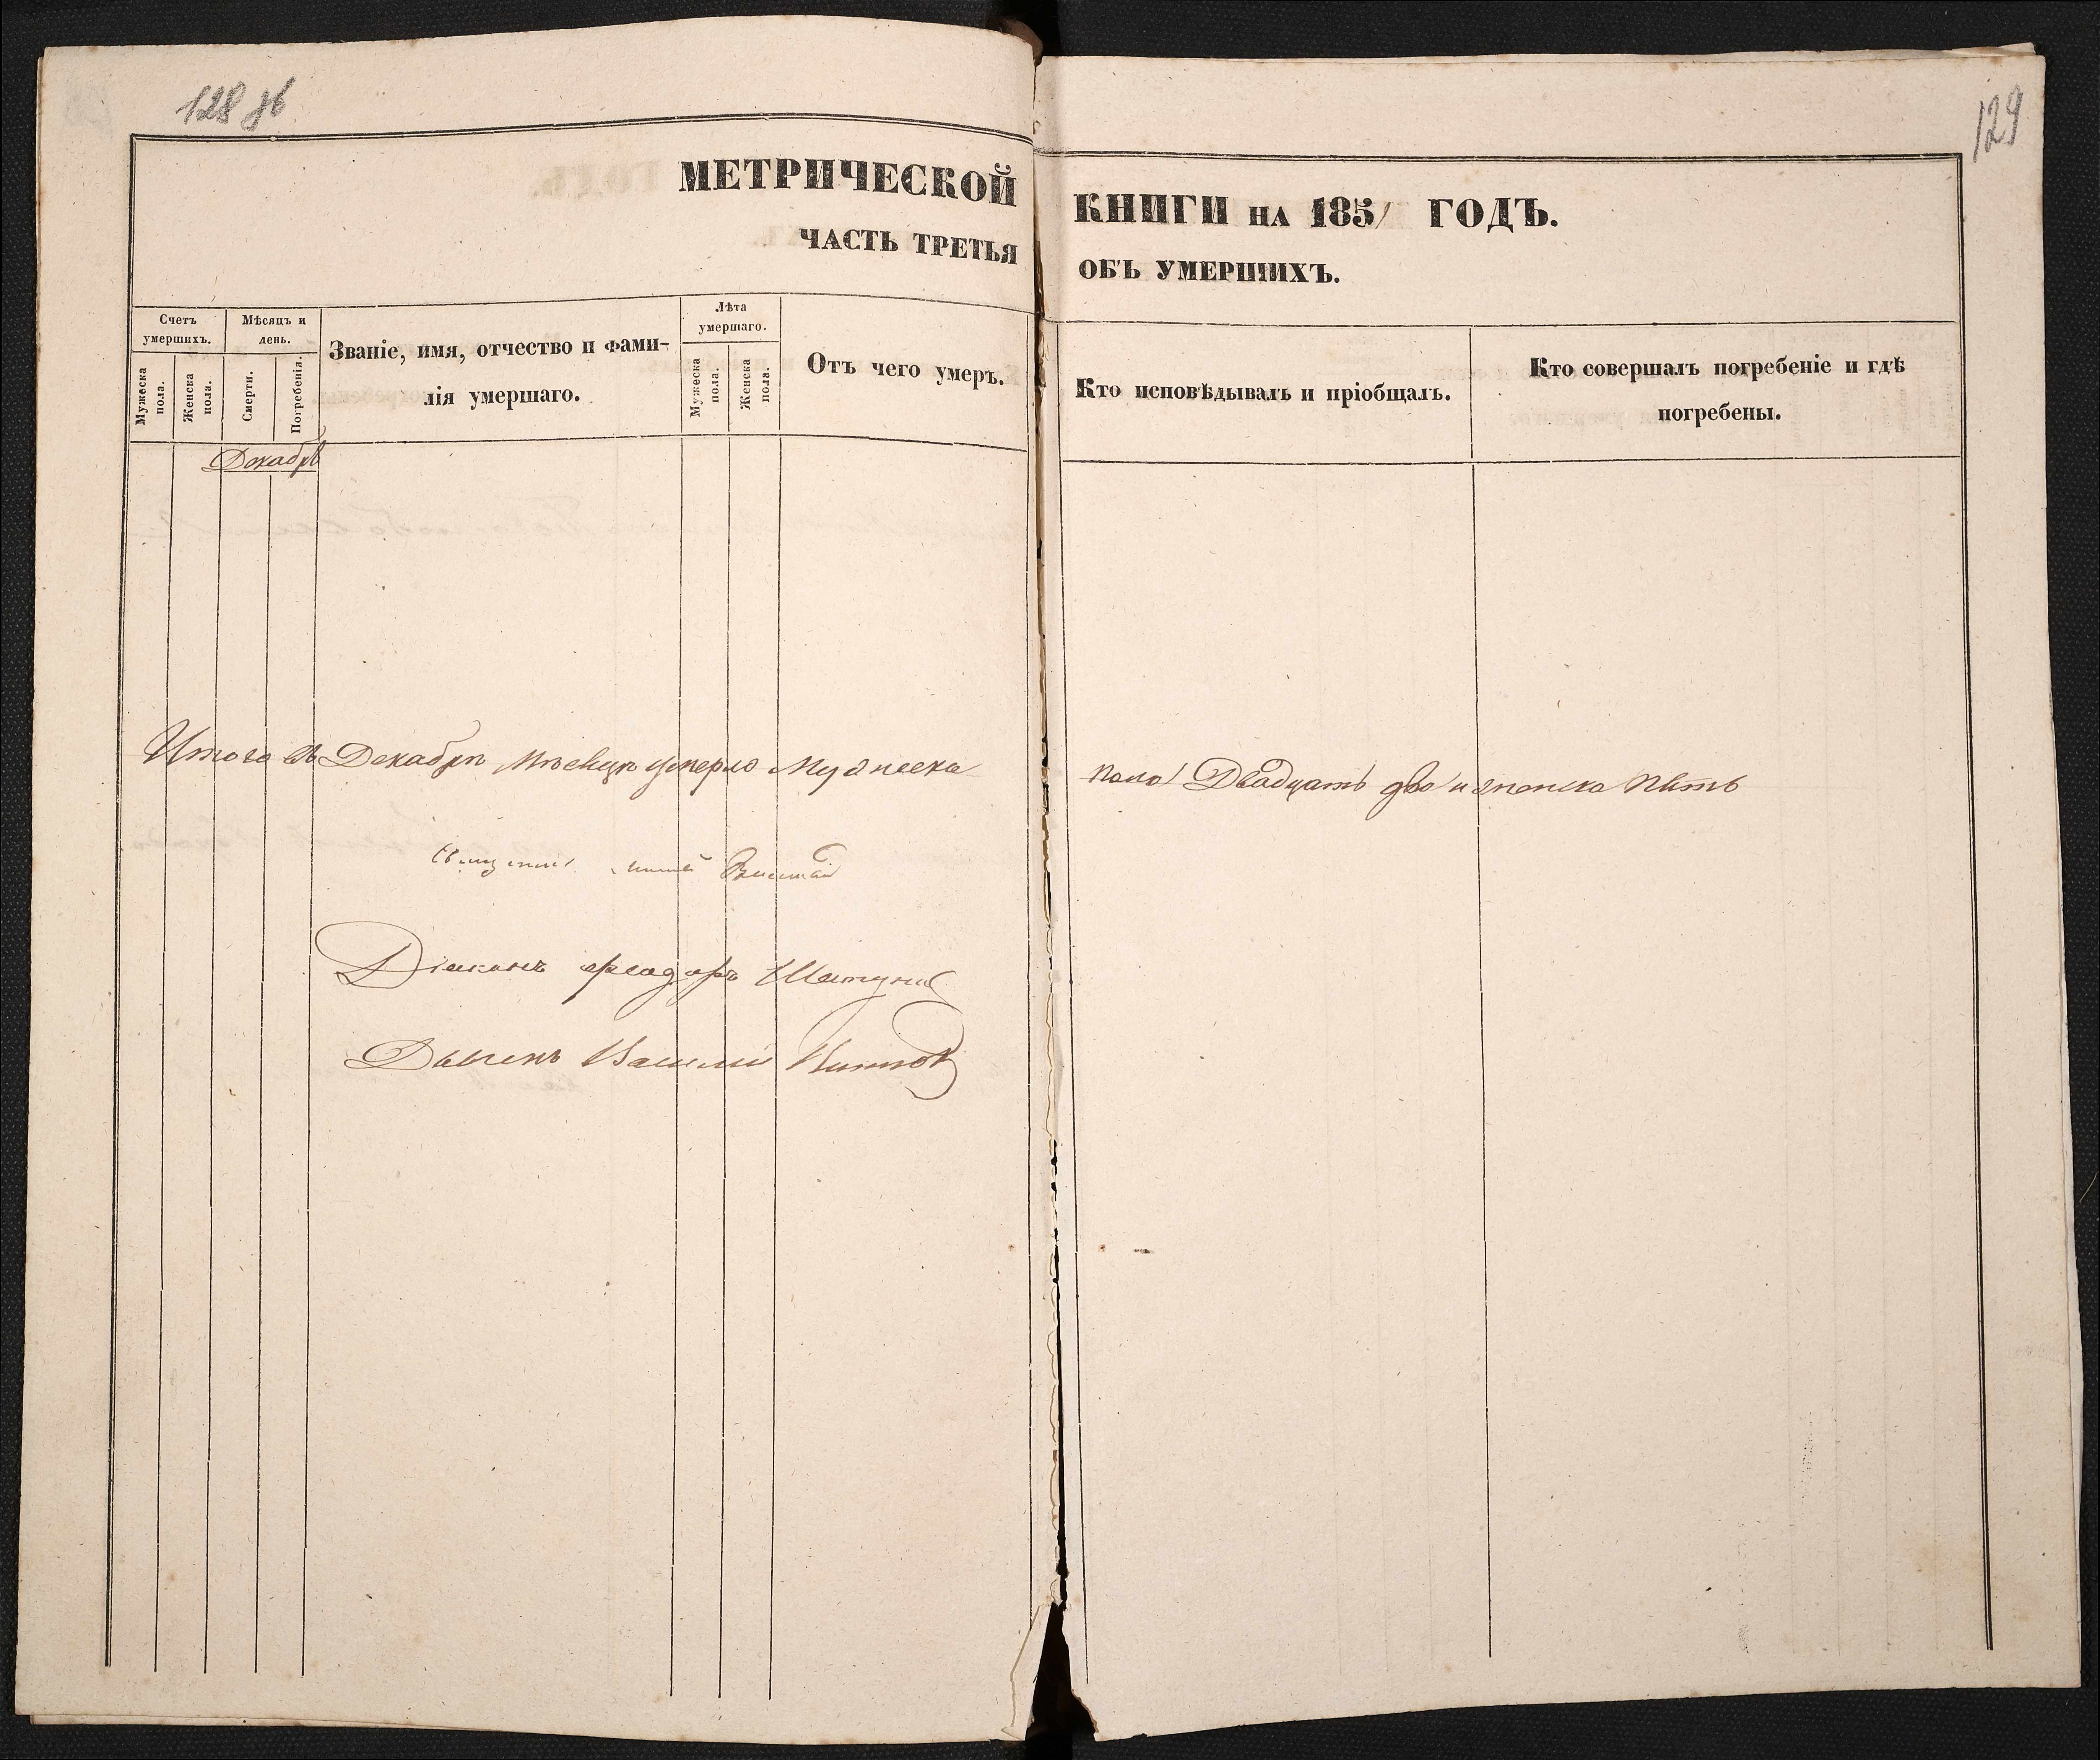 128 зв
129
МЕТРИЧЕСКОЙ КНИГИ НА 1851 ГОДЪ.
ЧАСТЬ ТРЕТЬЯ ОБЪ УМЕРШИХЪ.
Счетъ умершихъ.
Мужеска пола.
Женска пола.
Мѣсяцъ и день.
Смерти.
Погребенія.
Званіе, имя, отчество и фами-
лія умершаго.
Лѣта умершаго.
Мужеска пола.
Женска пола.
Отъ чего умеръ.
Кто исповѣдывалъ и пріобщалъ.
Кто совершалъ погребеніе и гдѣ
погребены.
Декабрь
Итого въ Декабрѣ мѣсяцѣ умерло мужеска пола Двадцать два и женска пять
Діаконъ Феодоръ
Дьячекъ Василій